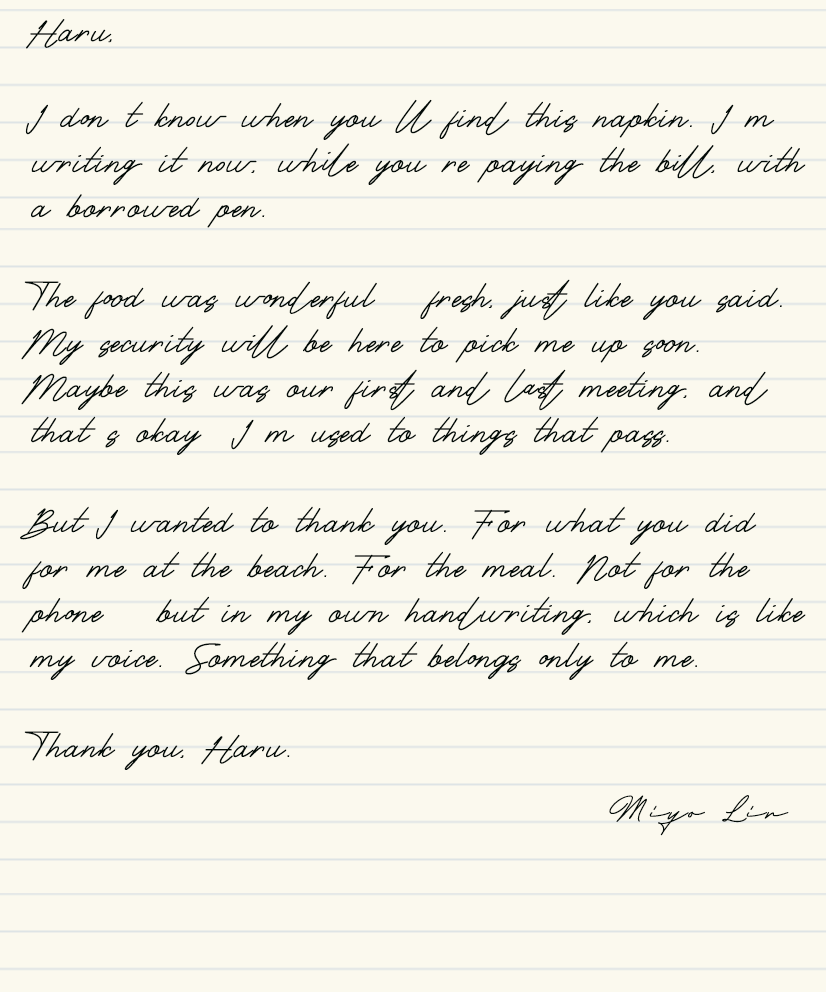 Haru,
I don t know when you ll find this napkin. I m
writing it now, while you re paying the bill, with
a borrowed pen.
The food was wonderful fresh, just like you said.
My security will be here to pick me up soon.
Maybe this was our first and last meeting, and
that s okay I m used to things that pass.
But I wanted to thank you. For what you did
for me at the beach. For the meal. Not for the
phone but in my own handwriting, which is like
my voice. Something that belongs only to me.
Thank you, Haru.
Miyo Lin